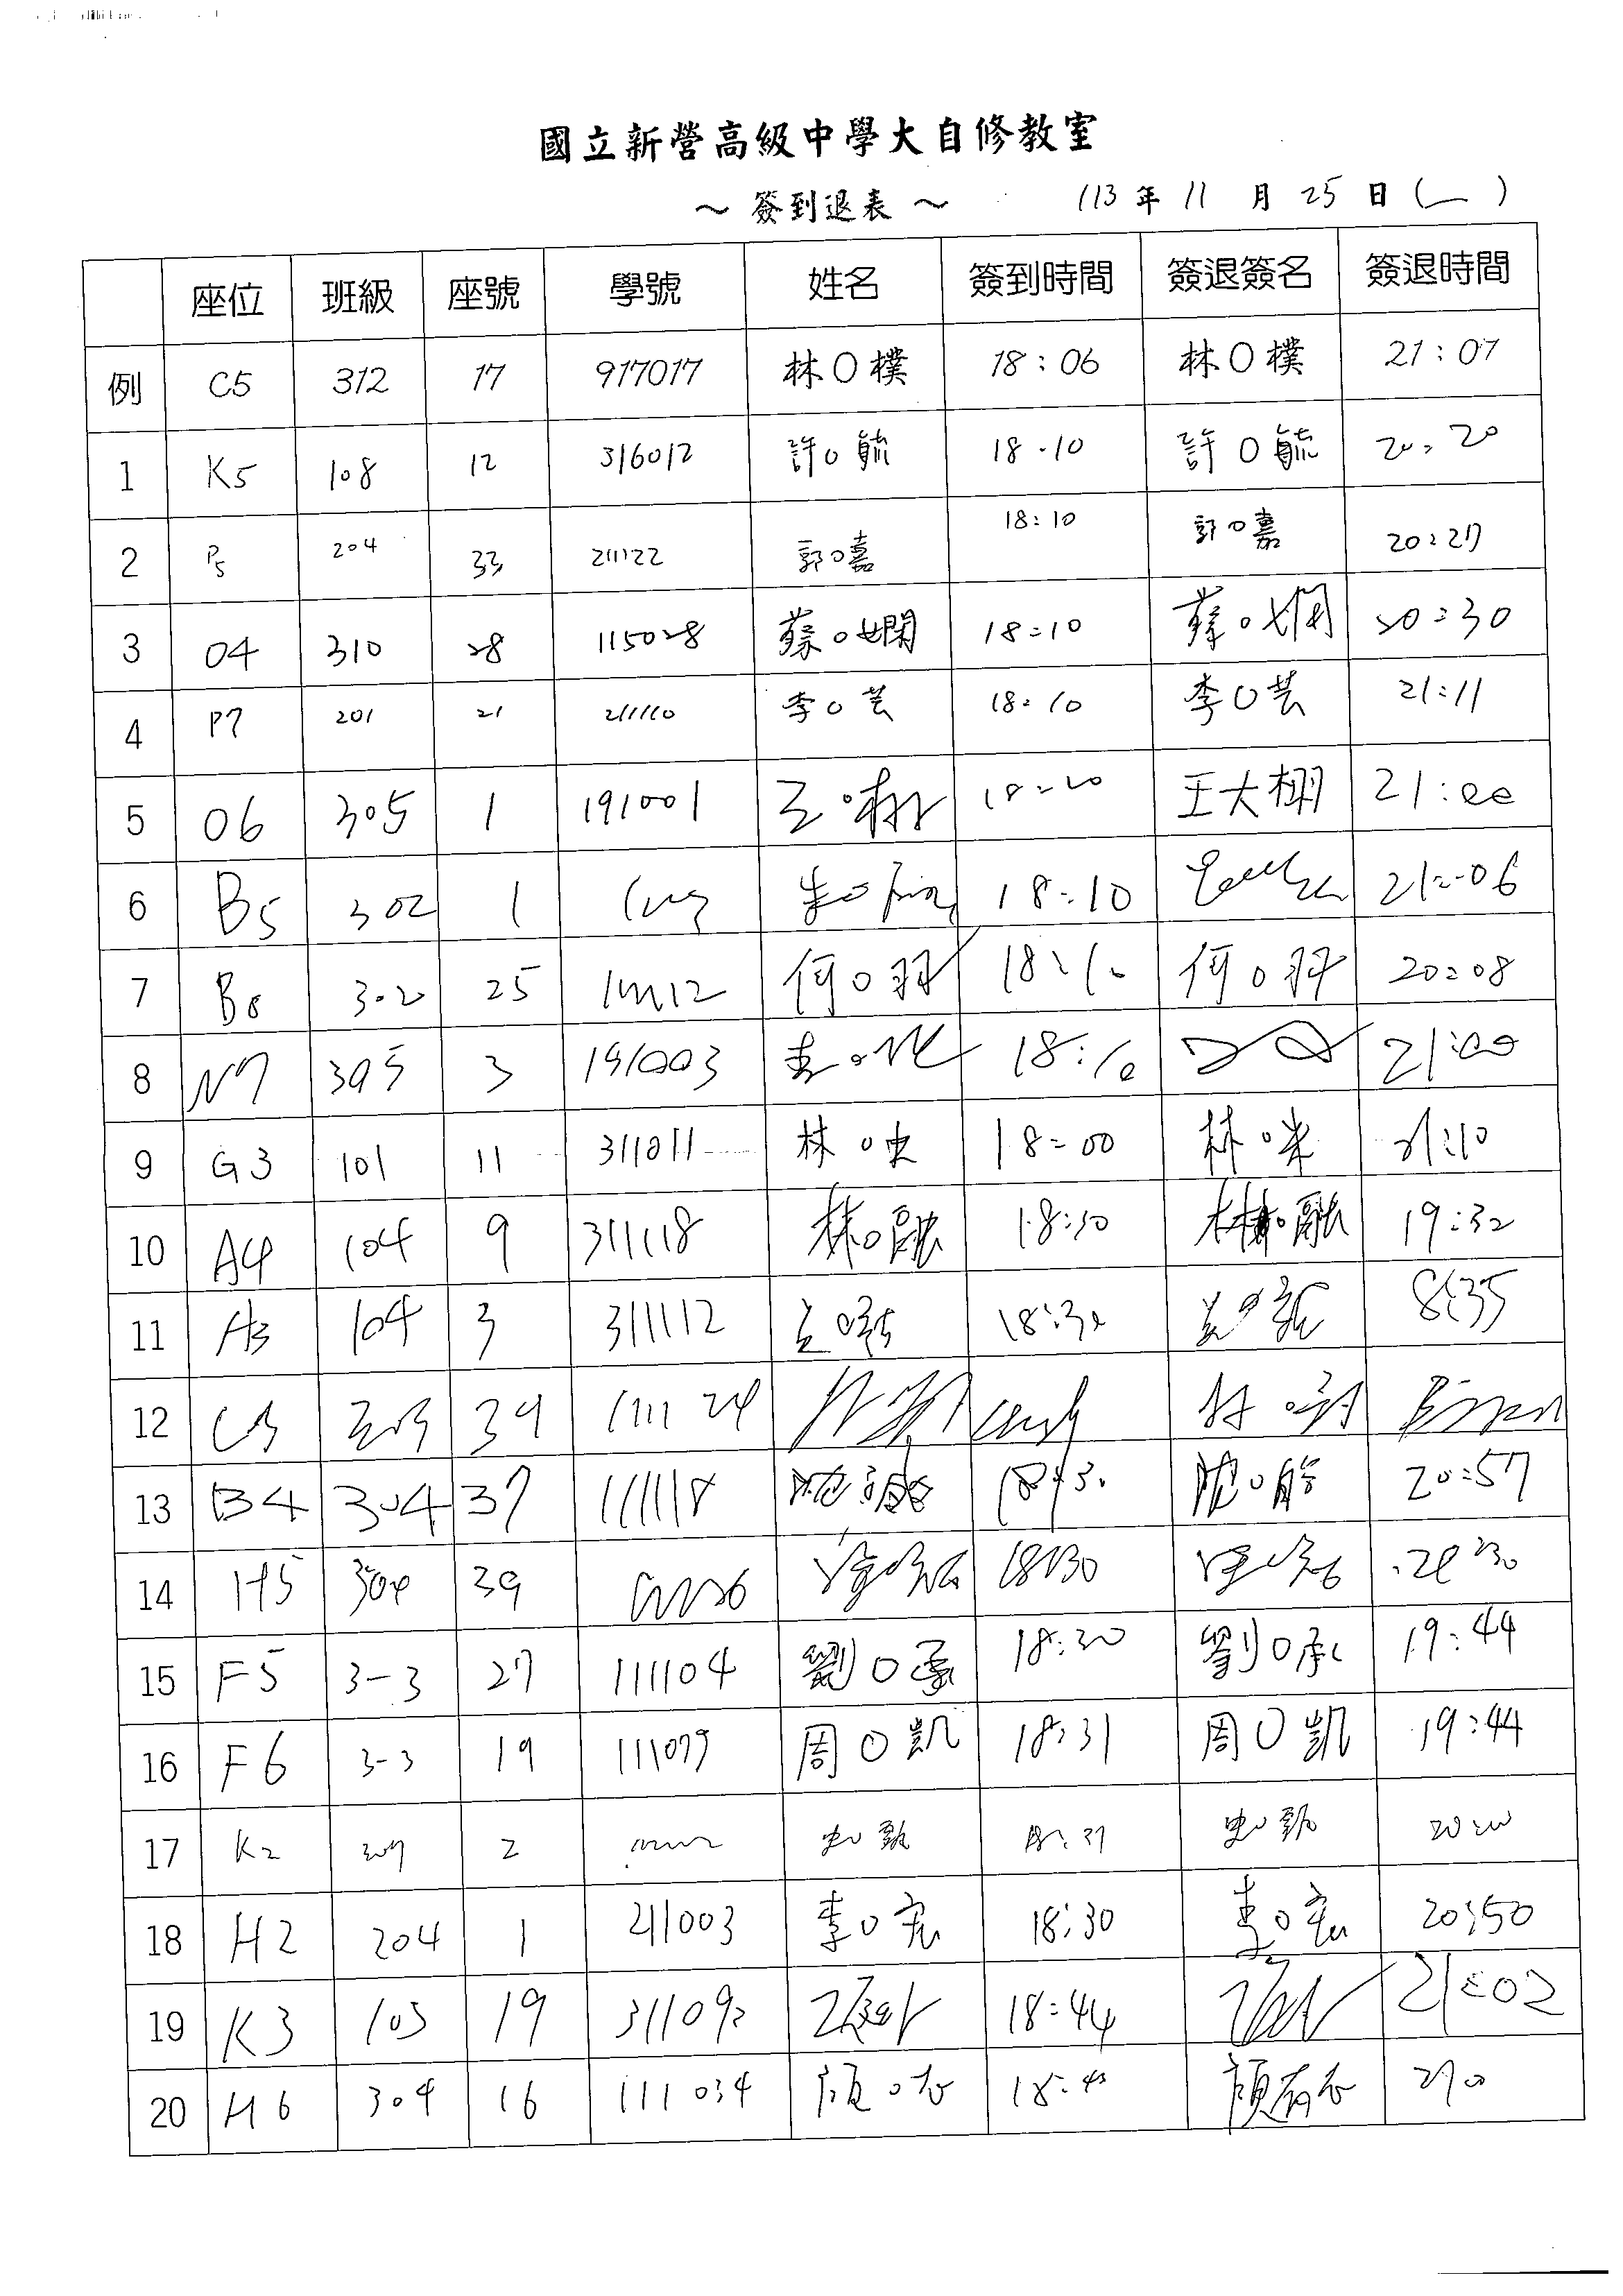 國立新營高級中學大自修教室
～ 簽到退表 ～ 113 年 11 月 25 日 (一)
座位 班級 座號 學號 姓名 簽到時間 簽退簽名 簽退時間
例 C5 312 17 917017 林O樸 18:06 林O樸 21:07
1 K5 108 12 316012 許O毓 18:10 許O毓 20:20
2 P5 204 33 211122 郭O嘉 18:10 郭O嘉 20:27
3 O4 310 28 115028 蘇O嫻 18:10 蘇O嫻 20:30
4 P7 201 21 211110 李O芸 18:10 李O芸 21:11
5 O6 305 1 191001 王O栩 18:20 王大栩 21:00
6 B5 302 1 18:10 21:06
7 B6 302 25 何O羽 18:10 何O羽 20:08
8 N7 305 3 191003 18:10 21:00
9 G3 101 11 311011 林O 18:00 林O 21:10
10 A4 104 9 311118 林O融 18:30 林O融 19:32
11 A3 104 3 311112 18:30 8:35
12 39 111124 林
13 B4 304 37 111118 18:30 20:57
14 H5 304 39 18:30
15 F5 3-3 27 111104 劉O承 18:30 劉O承 19:44
16 F6 3-3 19 111079 周O凱 18:31 周O凱 19:44
17 K2 2 18:31
18 H2 204 1 211003 李O宏 18:30 李O宏 20:50
19 K3 103 19 311092 18:44 21:02
20 H6 304 16 111034 顏O 18:4 顏